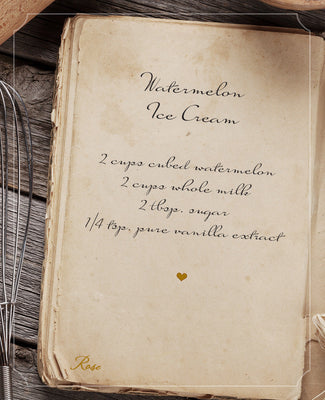 Watermelon
Ice Cream
2 cups cubed watermelon
2 cups whole milk
2 tbsp. sugar
1/4 tsp. pure vanilla extract
Rose